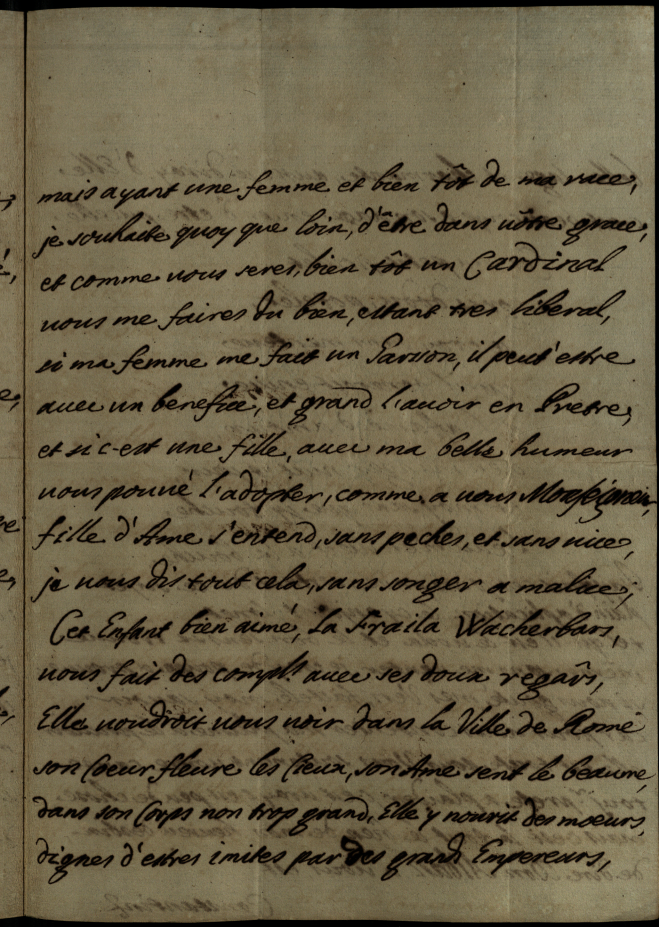 mais ayant une femme et bien tôt de ma race,
je souhaite quoy que loin, d'être dans vôtre grace,
et comme vous seres, bien tôt un Cardinal
vous me faires du bien, estant tres liberal,
si ma femme me fait un Garson, il peut estre
avec un benefice, et grand l'avoir en Pretre,
et si c-est une fille, avec ma belle humeur
vous pouvé l'adopter, comme a vous Monseigneur,
fille d'Ame s'entend, sans peches, et sans vice,
je vous dis tout cela, sans songer a malice,
Cet Enfant bien aimé, La Fraila Wacherbars,
vous fait des compl.ts avec ses doux regârs,
Elle voudroit vous voir dans la Ville de Rome
son Coeur fleure les Cieux, son Ame sent le beaume,
dans son Corps non trop grand, Elle y nourit des moeurs,
dignes d'estres imites par des grands Empereurs,